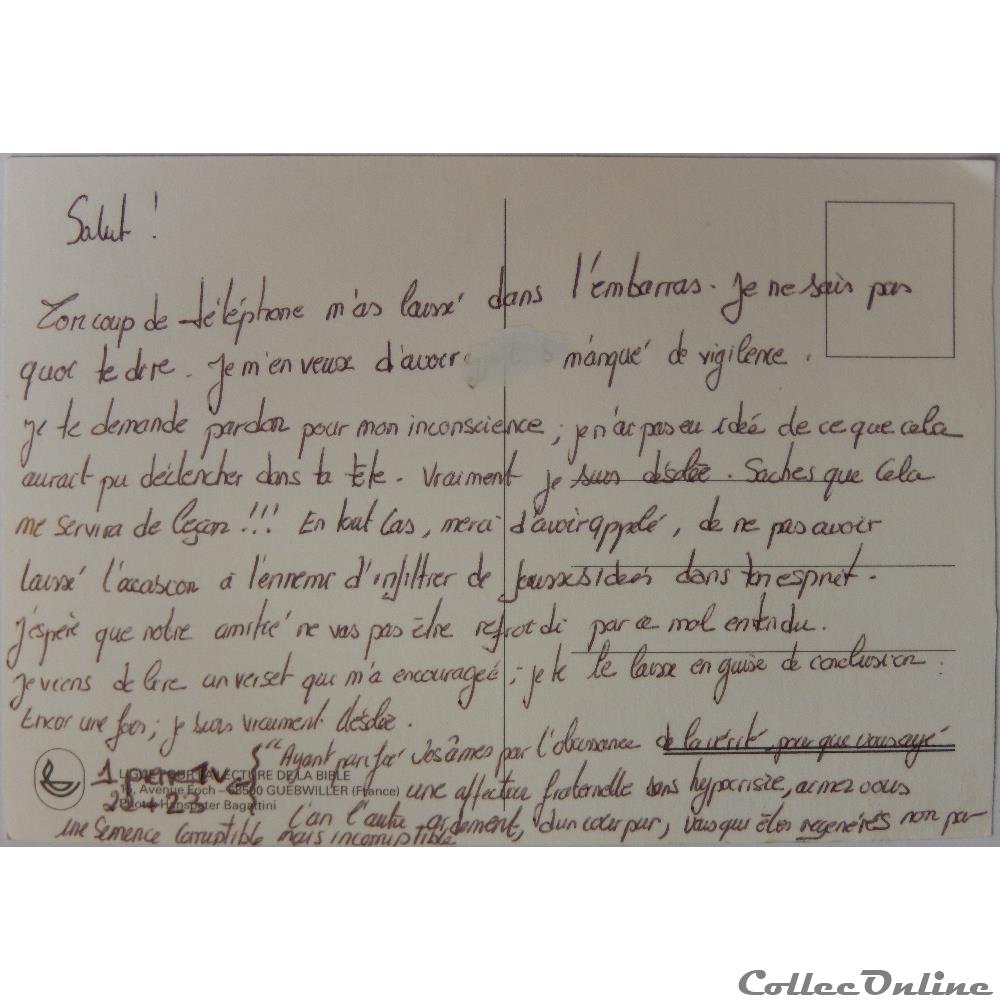 Salut !
Ton coup de téléphone m'as laissé dans l'embarras. Je ne sais pas
quoi te dire. Je m'en veux d'avoir manqué de vigilence.
je te demande pardon pour mon inconscience ; je n'ai pas eu idée de ce que cela
aurait pu déclencher dans ta tête. Vraiment je suis désolée. Saches que cela
me servira de leçon !!! En tout cas, merci d'avoir appelé, de ne pas avoir
laissé l'occasion à l'ennemi d'infiltrer de fausses idées dans ton esprit.
J'espère que notre amitié ne vas pas être refroidi par ce mal entendu.
Je viens de lire un verset qui m'a encouragée ; je te le laisse en guise de conclusion.
Encor une fois ; je suis vraiment désolée.
"Ayant purifié vos âmes par l'obeissance de la vérité pour que vous ayé
1 22+23
une affection fraternelle sans hypocrisie, aimez vous
l'un l'autre ardement, d'un cœur pur, vous qui êtes regenérés non par
une semence corruptible mais incorruptible
LIGUE POUR LA LECTURE DE LA BIBLE
Avenue Foch - 68500 GUEBWILLER (France)
Photo: Hanspeter Bagattini
CollecOnline